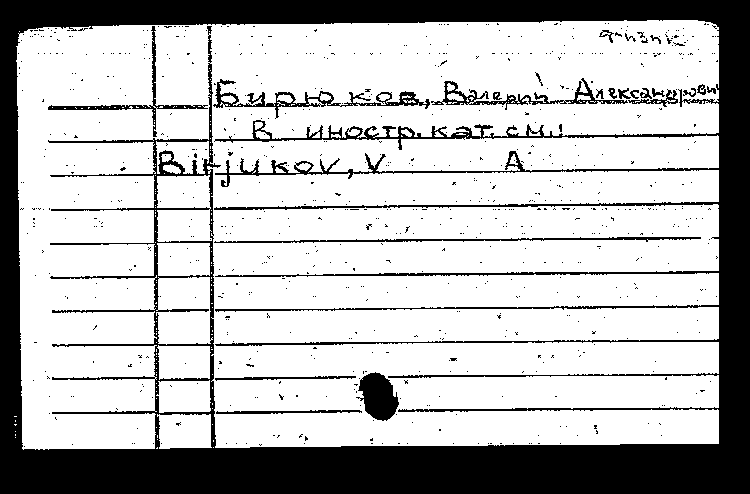 физик
Бирюков, Валерий Александрович
В иностр. кат. см.:
Birjukov, V A